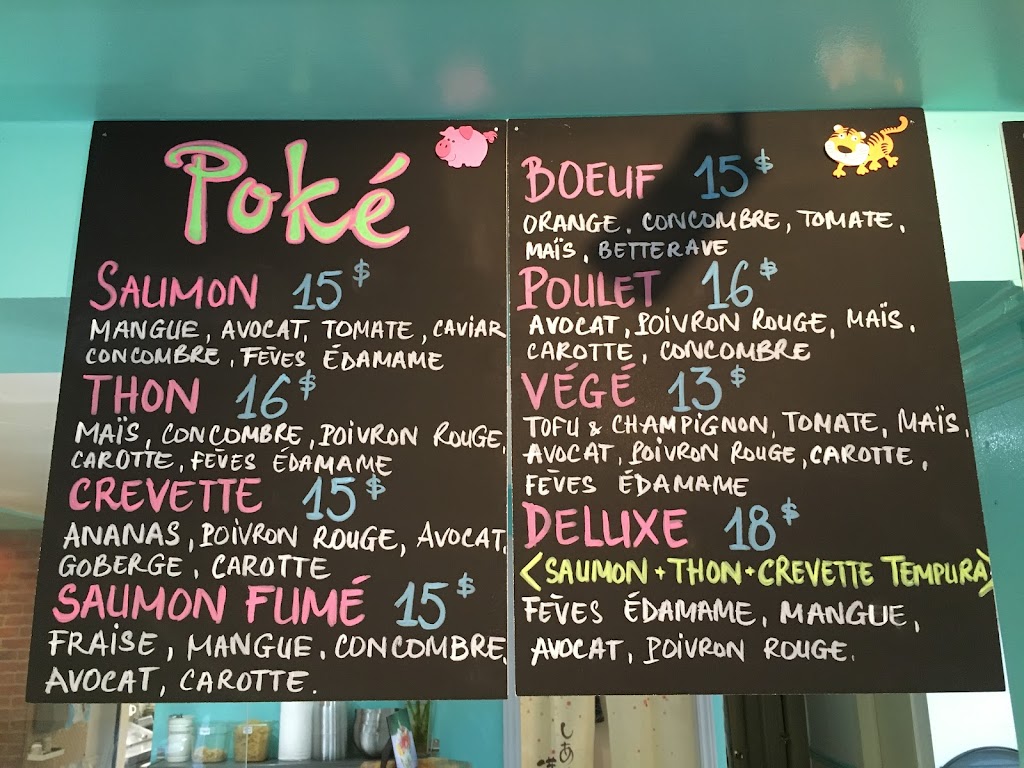 Poké
SAUMON 15$
MANGUE, AVOCAT, TOMATE, CAVIAR
CONCOMBRE, FÈVES ÉDAMAME
THON 16$
MAÏS, CONCOMBRE, POIVRON ROUGE,
CAROTTE, FÈVES ÉDAMAME
CREVETTE 15$
ANANAS, POIVRON ROUGE, AVOCAT,
GOBERGE, CAROTTE
SAUMON FUMÉ 15$
FRAISE, MANGUE, CONCOMBRE,
AVOCAT, CAROTTE.
BOEUF 15$
ORANGE, CONCOMBRE, TOMATE,
MAÏS, BETTERAVE
POULET 16$
AVOCAT, POIVRON ROUGE, MAÏS,
CAROTTE, CONCOMBRE
VÉGÉ 13$
TOFU & CHAMPIGNON, TOMATE, MAÏS,
AVOCAT, POIVRON ROUGE, CAROTTE,
FÈVES ÉDAMAME
DELUXE 18$
<SAUMON + THON + CREVETTE TEMPURA>
FÈVES ÉDAMAME, MANGUE,
AVOCAT, POIVRON ROUGE.
しあ